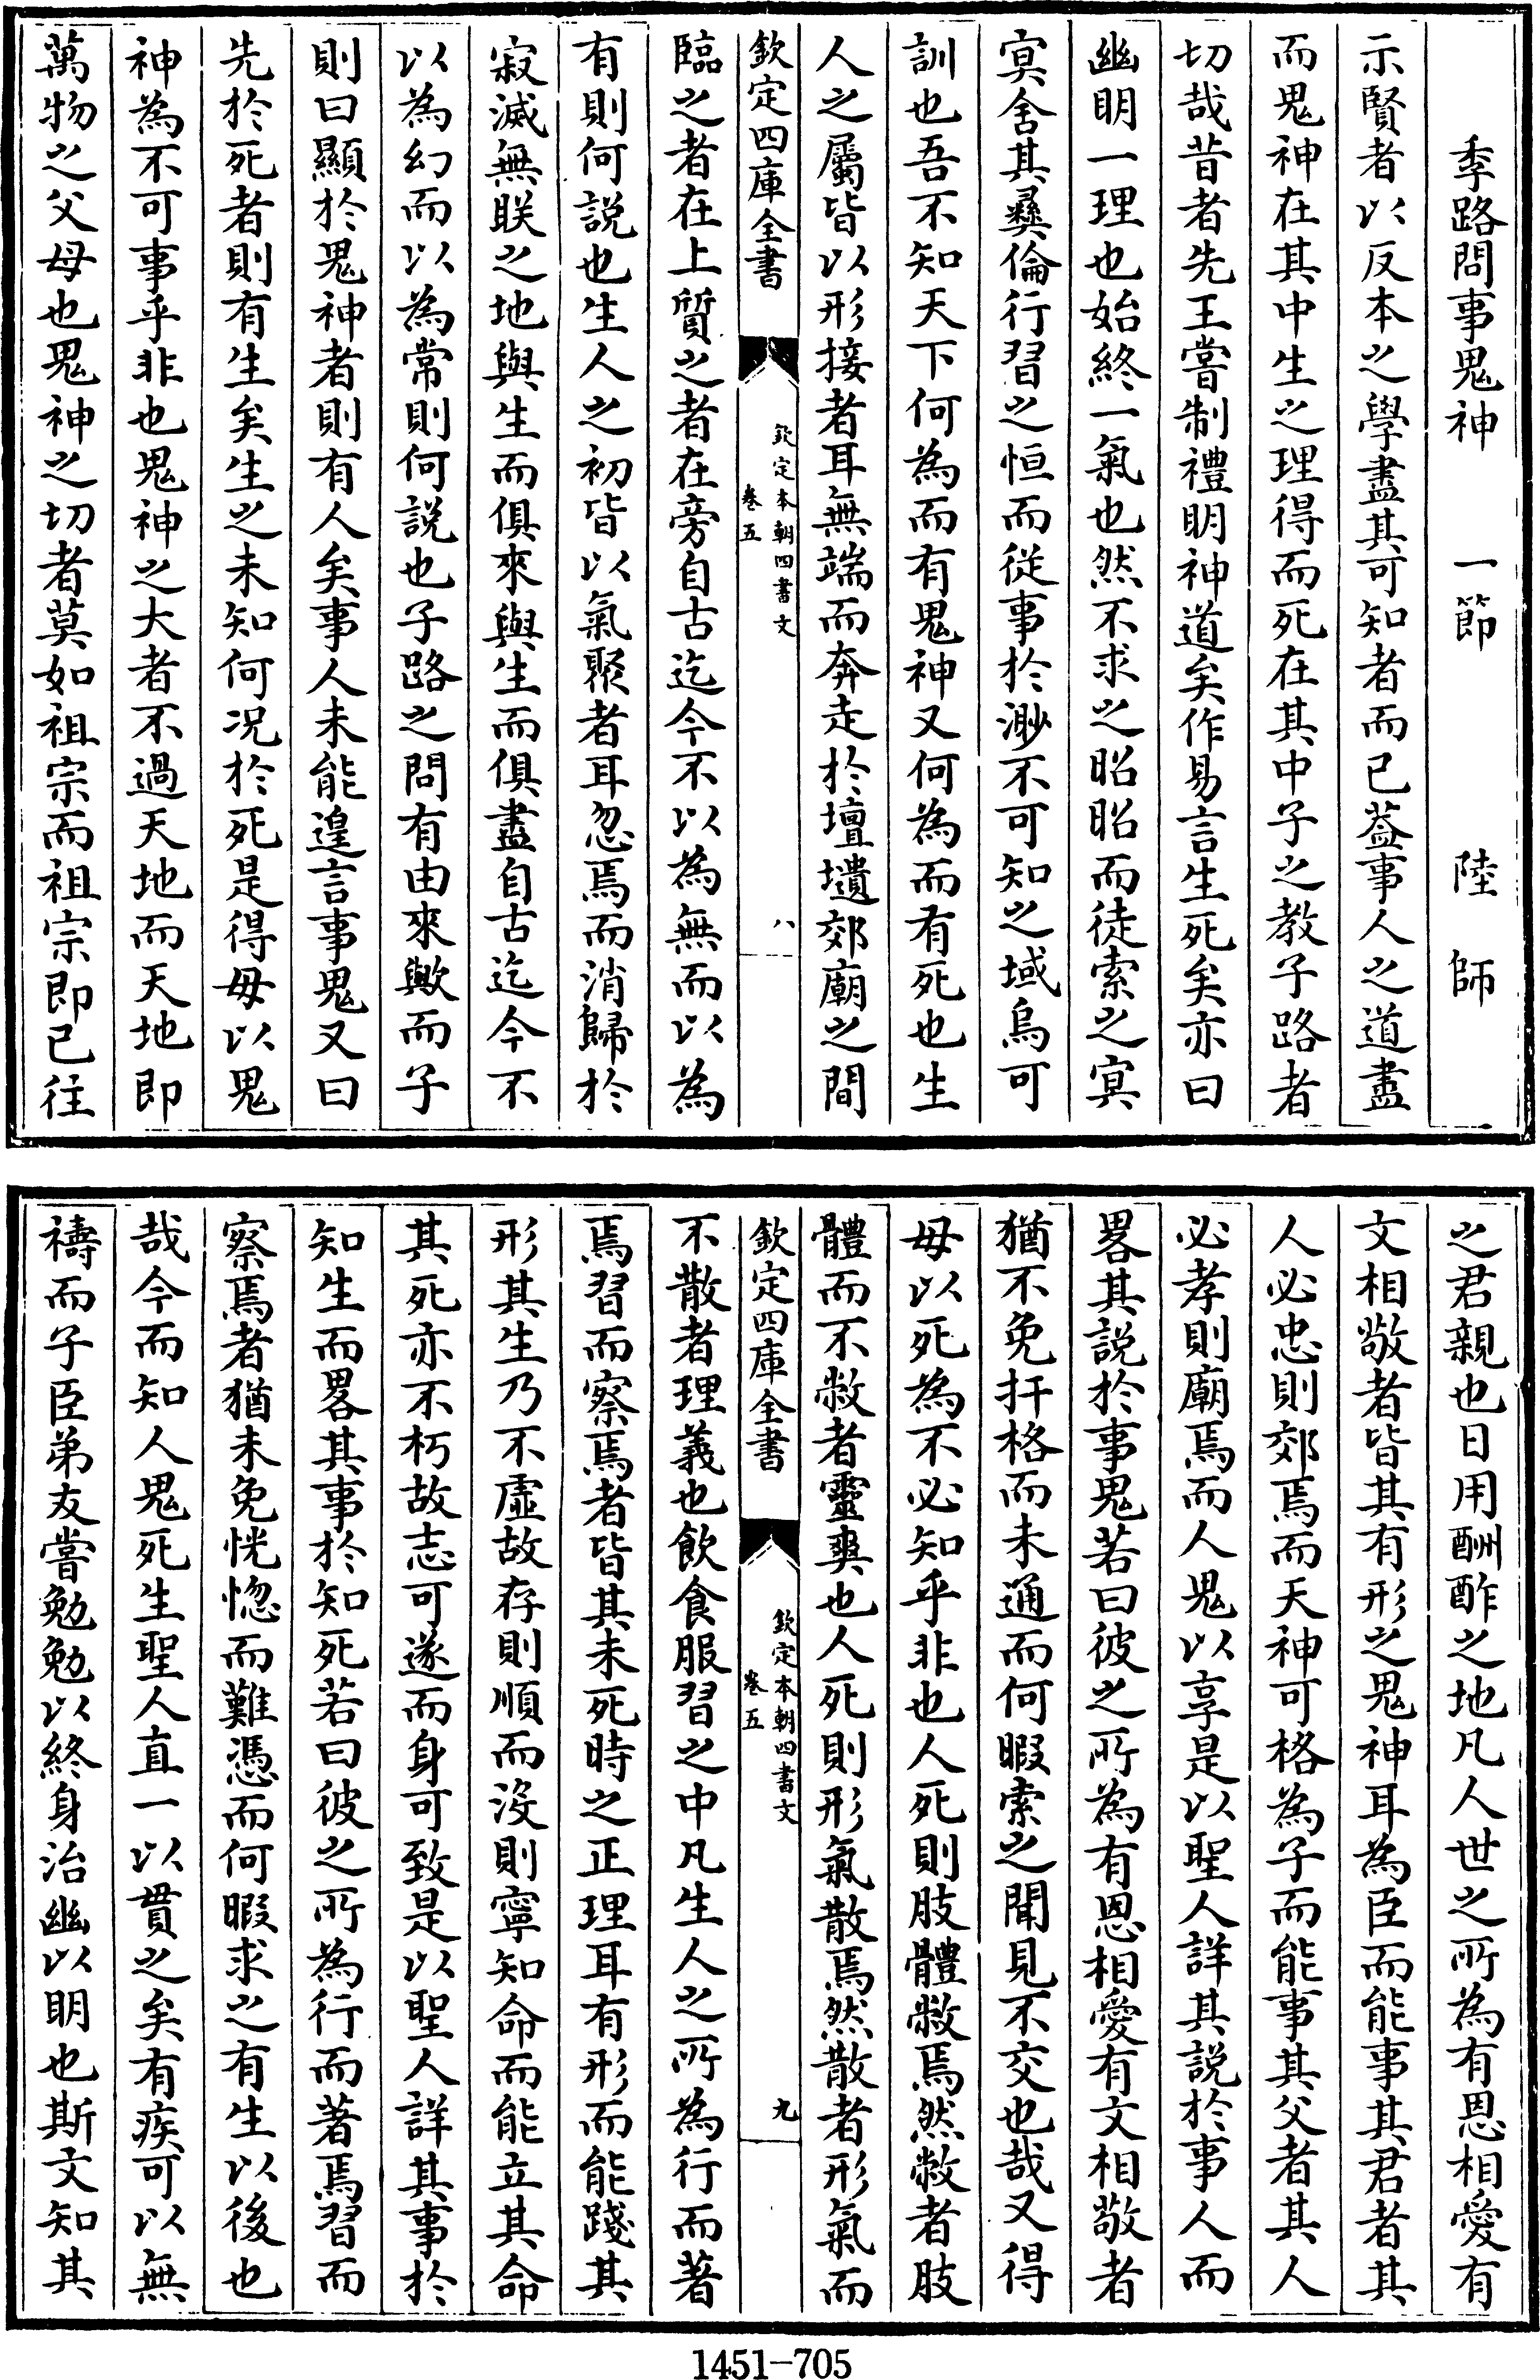 季路問事鬼神　一節　陸師
示賢者以反本之學盡其可知者而已葢事人之道盡
而鬼神在其中生之理得而死在其中子之教子路者
切哉昔者先王嘗制禮明神道矣作易言生死矣亦曰
幽明一理也始終一氣也然不求之昭昭而徒索之冥
冥舍其彝倫行習之恒而從事於渺不可知之域烏可
訓也吾不知天下何為而有鬼神又何為而有死也生
人之屬皆以形接者耳無端而奔走於壇壝郊廟之間
欽定四庫全書
欽定本朝四書文
卷五
八
臨之者在上質之者在旁自古迄今不以為無而以為
有則何說也生人之初皆以氣聚者耳忽焉而消歸於
寂滅無朕之地與生而俱來與生而俱盡自古迄今不
以為幻而以為常則何說也子路之問有由來歟而子
則曰顯於鬼神者則有人矣事人未能遑言事鬼又曰
先於死者則有生矣生之未知何况於死是得毋以鬼
神為不可事乎非也鬼神之大者不過天地而天地即
萬物之父母也鬼神之切者莫如祖宗而祖宗即已往
之君親也日用酬酢之地凡人世之所為有恩相愛有
文相敬者皆其有形之鬼神耳為臣而能事其君者其
人必忠則郊焉而天神可格為子而能事其父者其人
必孝則廟焉而人鬼以享是以聖人詳其說於事人而
畧其說於事鬼若曰彼之所為有恩相愛有文相敬者
猶不免扞格而未通而何暇索之聞見不交也哉又得
毋以死為不必知乎非也人死則肢體敝焉然敝者肢
體而不敝者靈爽也人死則形氣散焉然散者形氣而
欽定四庫全書
欽定本朝四書文
卷五
九
不散者理義也飲食服習之中凡生人之所為行而著
焉習而察焉者皆其未死時之正理耳有形而能踐其
形其生乃不虛故存則順而沒則寧知命而能立其命
其死亦不朽故志可遂而身可致是以聖人詳其事於
知生而畧其事於知死若曰彼之所為行而著焉習而
察焉者猶未免恍惚而難憑而何暇求之有生以後也
哉今而知人鬼死生聖人直一以貫之矣有疾可以無
禱而子臣弟友嘗勉勉以終身治幽以明也斯文知其
1451-705